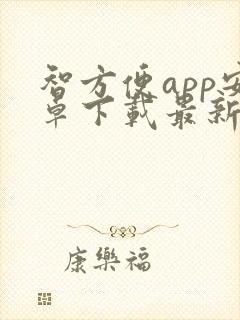 智方便app安
卓下載最新
康樂福